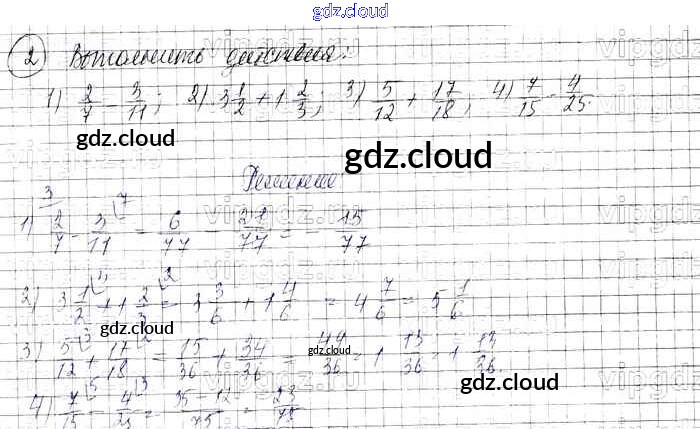 gdz.cloud
2 Выполнить действия:
1) 2/7 - 3/11; 2) 3 1/2 + 1 2/3; 3) 5/12 + 17/18; 4) 7/15 - 4/25.
gdz.cloud
gdz.cloud
Решение
1) 2/7 - 3/11 = 6/77 - 21/77 = - 15/77
2) 3 1/2 + 1 2/3 = 3 3/6 + 1 4/6 = 4 7/6 = 5 1/6
gdz.cloud
3) 5/12 + 17/18 = 15/36 + 34/36 = 49/36 = 1 13/36 = 1 13/36
gdz.cloud
gdz.cloud
4) 7/15 - 4/25 = 35 - 12/75 = 23/75